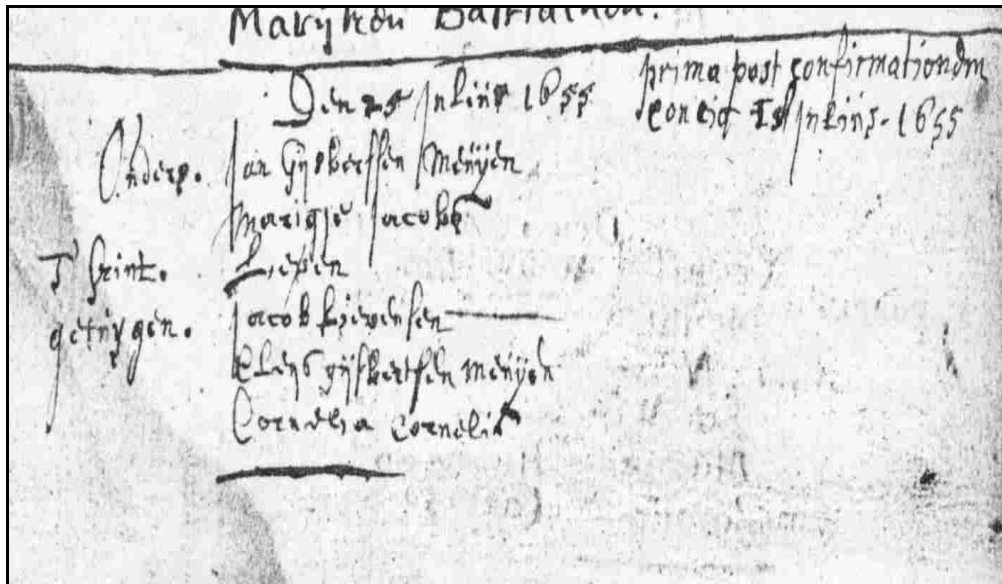 Marijken Bastiaenen.
Den 25 Julius 1655
prima post confirmationem
concio 25 Julius. 1655
Onders. Jan Gijsbertsen Meuijen
Marigje Jacobs
T kint. Lieven
getuygen. Jacob Lievensen
Clens gijsbertsen meuijen
Cornelia Cornelis